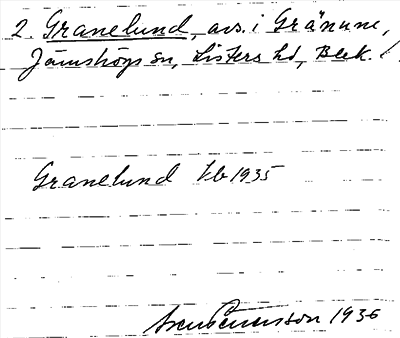 2. Granelund, avs. i Gränum,
Jämshögs sn, Listers hd, Blek. l.
Granelund Jb 1935
1936